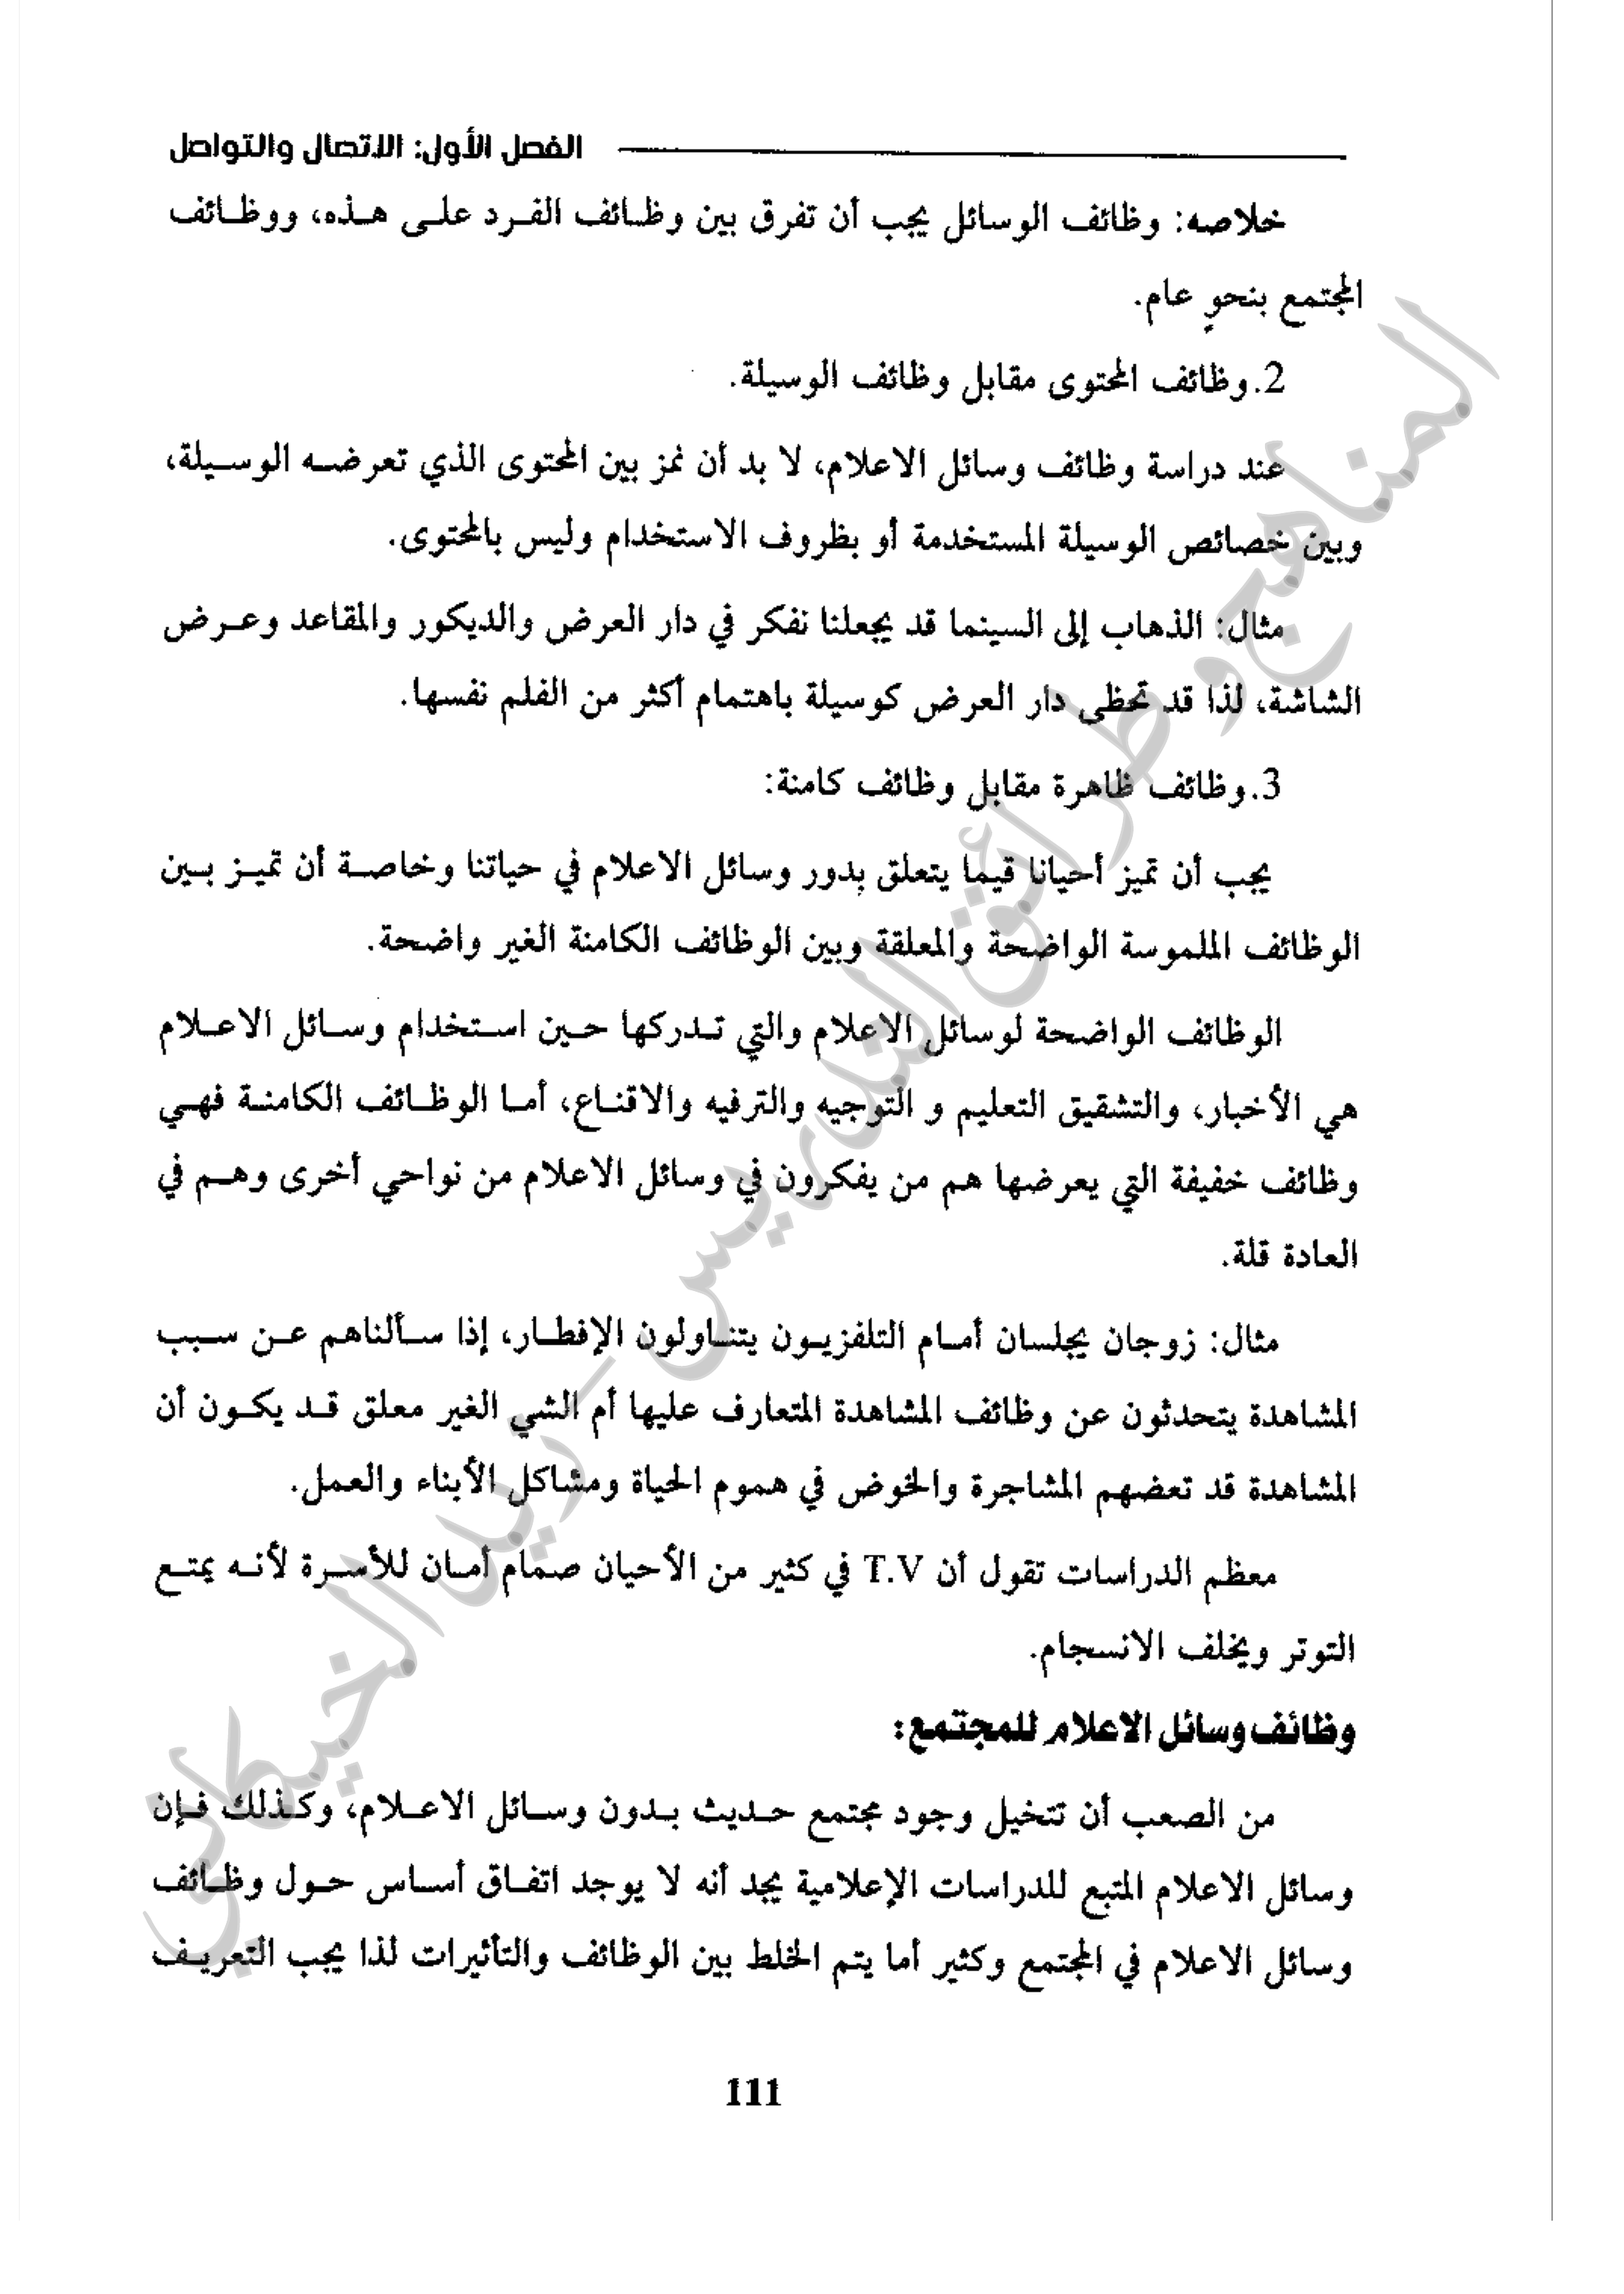 الفصل الأول: الاتصال والتواصل
خلاصه: وظائف الوسائل يجب أن تفرق بين وظائف الفرد على هذه، ووظائف
المجتمع بنحوٍ عام.
2.وظائف المحتوى مقابل وظائف الوسيلة.
عند دراسة وظائف وسائل الاعلام، لا بد أن نمز بين المحتوى الذي تعرضه الوسيلة،
وبين خصائص الوسيلة المستخدمة أو بظروف الاستخدام وليس بالمحتوى.
مثال: الذهاب إلى السينما قد يجعلنا نفكر في دار العرض والديكور والمقاعد وعرض
الشاشة، لذا قد تحظى دار العرض كوسيلة باهتمام أكثر من الفلم نفسها.
3.وظائف ظاهرة مقابل وظائف كامنة:
يجب أن تميز أحيانا قيما يتعلق بدور وسائل الاعلام في حياتنا وخاصة أن تميز بين
الوظائف الملموسة الواضحة والمعلقة وبين الوظائف الكامنة الغير واضحة.
الوظائف الواضحة لوسائل الاعلام والتي تدركها حين استخدام وسائل الاعلام
هي الأخبار، والتشقيق التعليم و التوجيه والترفيه والاقناع، أما الوظائف الكامنة فهي
وظائف خفيفة التي يعرضها هم من يفكرون في وسائل الاعلام من نواحي أخرى وهم في
العادة قلة.
مثال: زوجان يجلسان أمام التلفزيون يتناولون الإفطار، إذا سألناهم عن سبب
المشاهدة يتحدثون عن وظائف المشاهدة المتعارف عليها أم الشي الغير معلق قد يكون أن
المشاهدة قد تعضهم المشاجرة والخوض في هموم الحياة ومشاكل الأبناء والعمل.
معظم الدراسات تقول أن T.V في كثير من الأحيان صمام أمان للأسرة لأنه يمتع
التوتر ويخلف الانسجام.
وظائف وسائل الاعلام للمجتمع:
من الصعب أن تتخيل وجود مجتمع حديث بدون وسائل الاعلام، وكذلك فإن
وسائل الاعلام المتبع للدراسات الإعلامية يجد أنه لا يوجد اتفاق أساس حول وظائف
وسائل الاعلام في المجتمع وكثير أما يتم الخلط بين الوظائف والتأثيرات لذا يجب التعريف
111
المناهج وطرائق التدريس - زيد الخيكاني